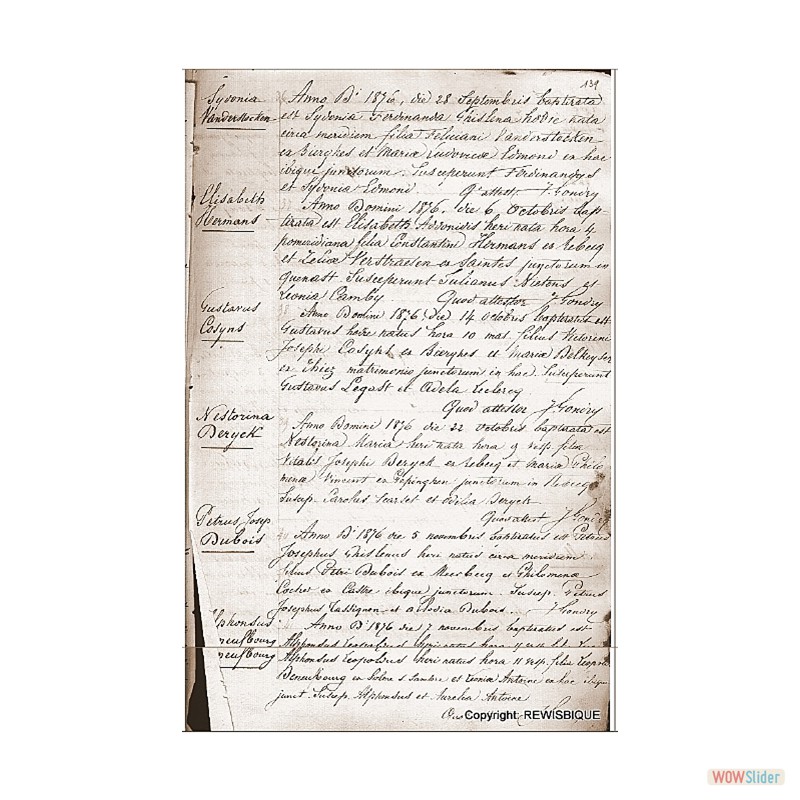 131
Sydonia
Vanderstocken
Anno D.i 1876, die 28 Septembris baptizata
est Sydonia Ferdinanda Ghislina hodie nata
circa meridiem filia Feliciani Vanderstocken
ex Bierghes et Mariæ Ludovicæ Edmoni ex hac
ibique junctorum. Susceperunt Ferdinandus
et Sydonia Edmoni. Q. attest. J Gondry
Elisabeth
Hermans
Anno Domini 1876, die 6 Octobris bap-
tizata est Elisabeth heri nata hora 4
pomeridiana filia Constantini Hermans ex Rebecq
et Zeliæ Verstraeten ex Saintes junctorum in
Quenast. Susceperunt Julianus et
Leonia Camby. Quod attestor J Gondry
Gustavus
Cosyns
Anno Domini 1876, die 14 Octobris baptizatus est
Gustavus hodie natus hora 10 mat. filius Victorini
Josephi Cosyns ex Bierghes et Mariæ Delkeyser
ex Thiez matrimonio junctorum in hac. Susceperunt
Gustavus Legast et Adela Leclercq
Quod attestor J Gondry
Nestorina
Deryck
Anno Domini 1876 die 22 octobris baptizata est
Nestorina Maria heri nata hora 9 vesp. filia
Vitalis Josephi Deryck ex Rebecq et Mariæ Philo-
menæ Vincent ex Pepinghen junctorum in Rebecq
Suscep. Carolus et Odilia Deryck
Quod attest J Gondry
Petrus Josep
Dubois
Anno D.i 1876 die 5 novembris baptizatus est Petrus
Josephus Ghislenus heri natus circa meridiem
filius Petri Dubois ex Meerbecq et Philomenæ
ex Castre ibique junctorum. Suscep. Petrus
Josephus Tassignon et Dubois. J Gondry
Alphonsus
Anno D.i 1876 die 7 novembris baptizatus est
Alphonsus Leopoldus heri natus hora 11 vesp. filius Leopol
ex Solre s Sambre et Leoniæ Antoine ex hac ibique
junct. Suscep. Alphonsus et Aurelia Antoine
Copyright: REWISBIQUE
WOWSlider